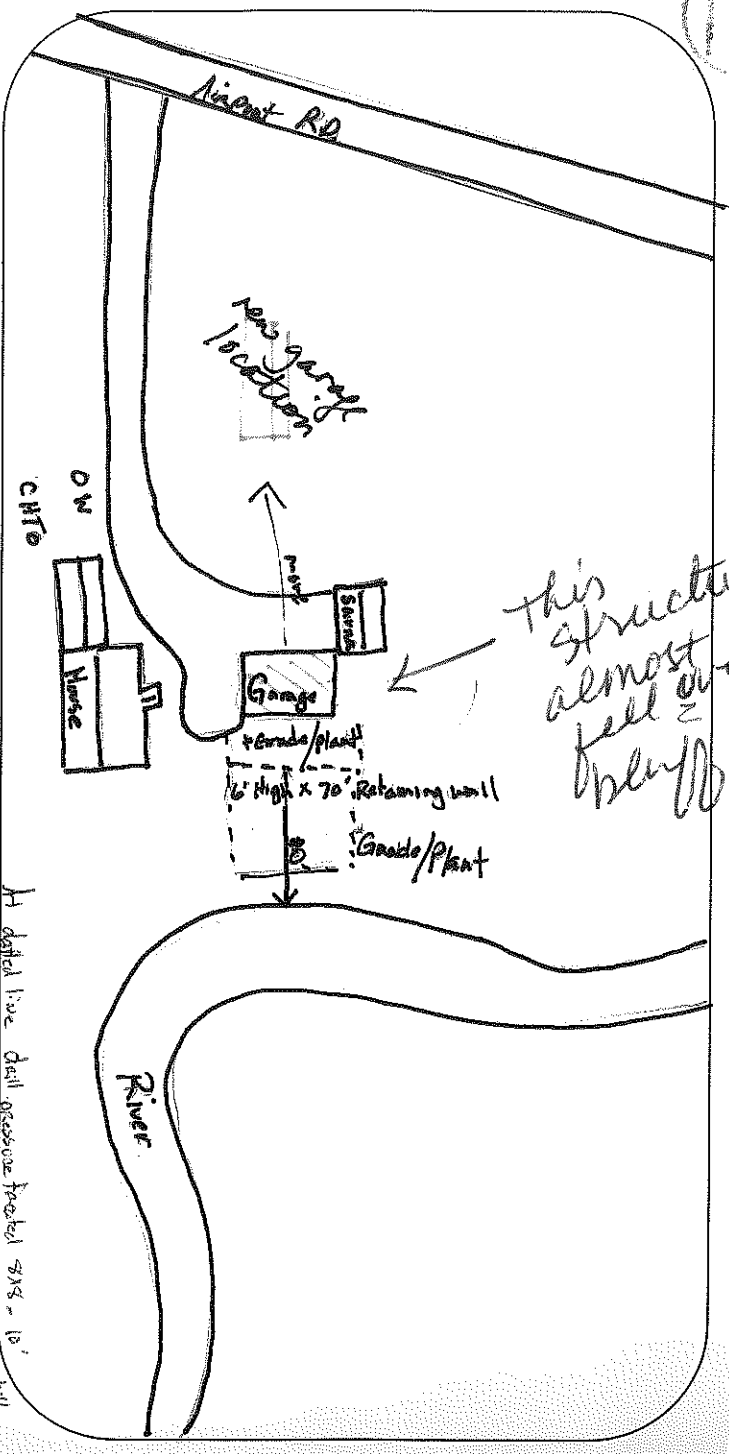 Airport RD
new garage
location
move
Sauna
Garage
this
structu
almost
fell ov
bluff
Grade/plant
6' High x 70' Retaining wall
80'
Grade/Plant
House
OW
CHTO
River
At dotted line drill pressure treated 8x8 - 10'